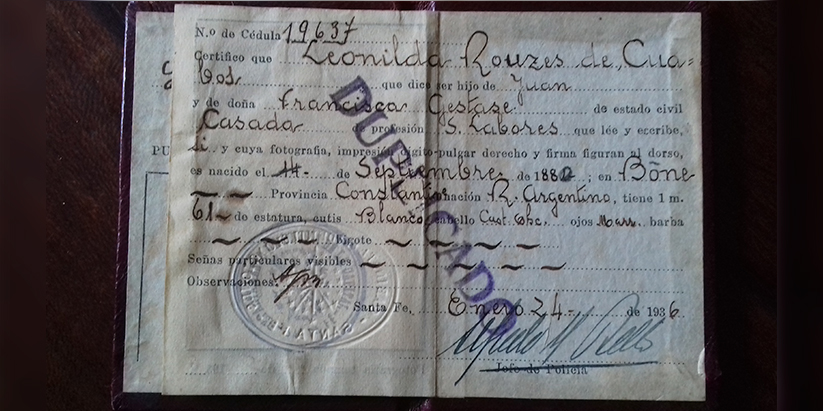 N.o de Cédula 19637
Certifico que Leonilda Rouzes de Cua-
bos que dice ser hijo de Juan
y de doña Francisca Gestase de estado civil
Casada de profesión S. Labores que lée y escribe,
si y cuya fotografia, impresión dígito-pulgar derecho y firma figuran al dorso,
es nacido el 14 de Septiembre de 1880, en Bône
Provincia Constantine nación R. Argentino, tiene 1 m.
61 de estatura, cutis Blanco cabello Cast. Obc. ojos Marr. barba
Bigote
Señas particulares visibles
Observaciones:
Santa Fe, Enero 24 de 1936
Jefe de Policía
DUPLICADO